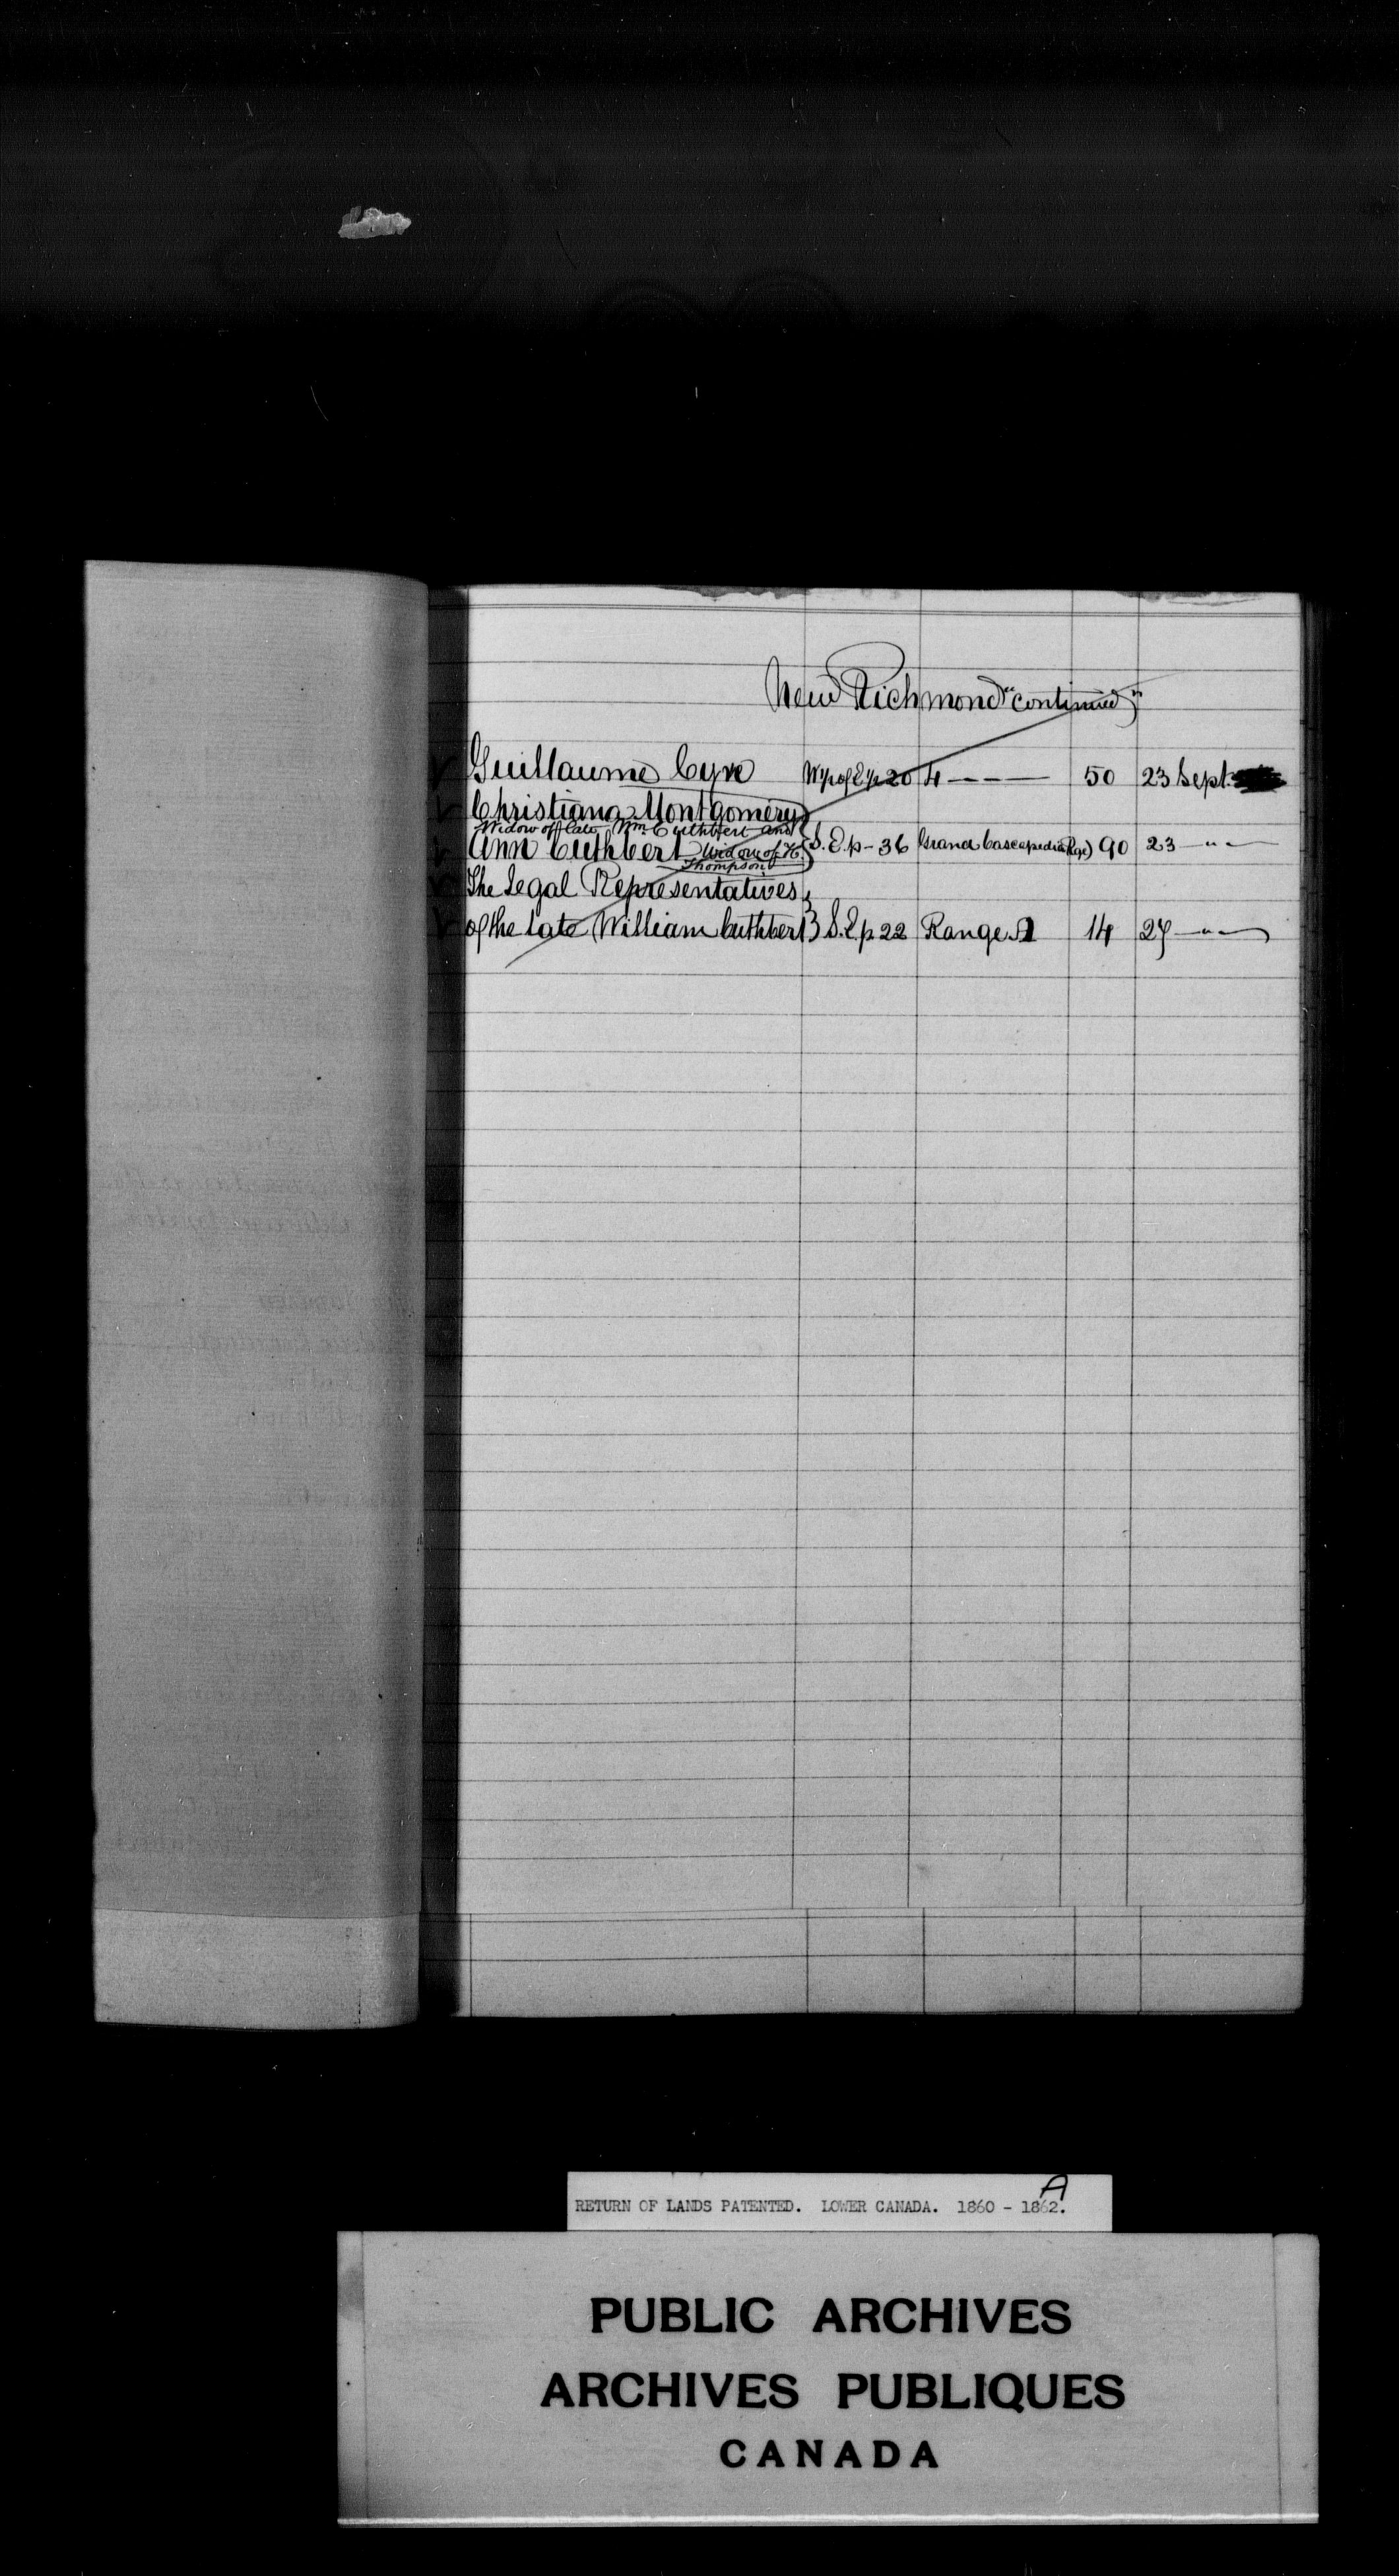 New Richmond "continued"
Guillaume Cyr W½ of E½ 20 4 - - - 50 23 Sept.
Christiana Montgomery
Widow of late Wm Cuthbert and
Ann Cuthbert Widow of H. S. E. p - 36 Grand Cascapedia Rge) 90 23 - " -
Thompson
The Legal Representatives
of the late William Cuthbert} S. E. p 22 Range A 14 27 - " -
A
RETURN OF LANDS PATENTED. LOWER CANADA. 1860 - 1862.
PUBLIC ARCHIVES
ARCHIVES PUBLIQUES
CANADA